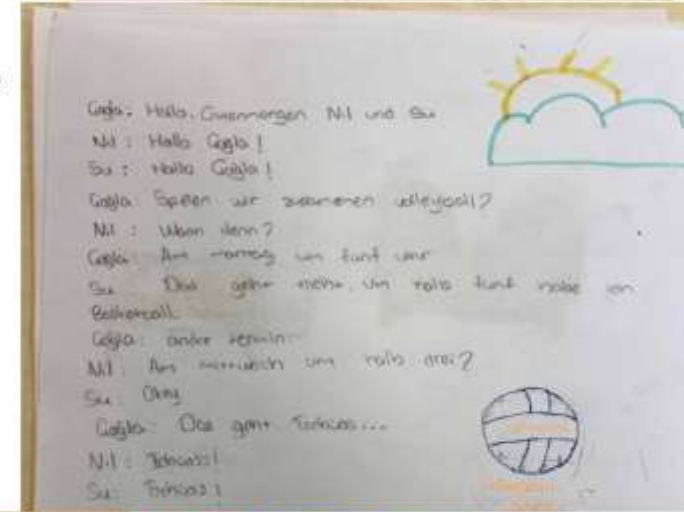 Çağla: Hallo, Gutenmorgen Nil und Su
Nil : Hallo Çağla !
Su : Hallo Çağla !
Çağla: Spielen wir zusammen volleyball?
Nil : Wann denn?
Çağla: Am um fünf uhr
Su : Das geht nicht. Um halb fünf habe ich
Basketball
Çağla: andre termin
Nil : Am mittwoch um halb drei?
Su : Okay
Çağla: Das geht Tschüss...
Nil : Tschüss!
Su : Tschüss !